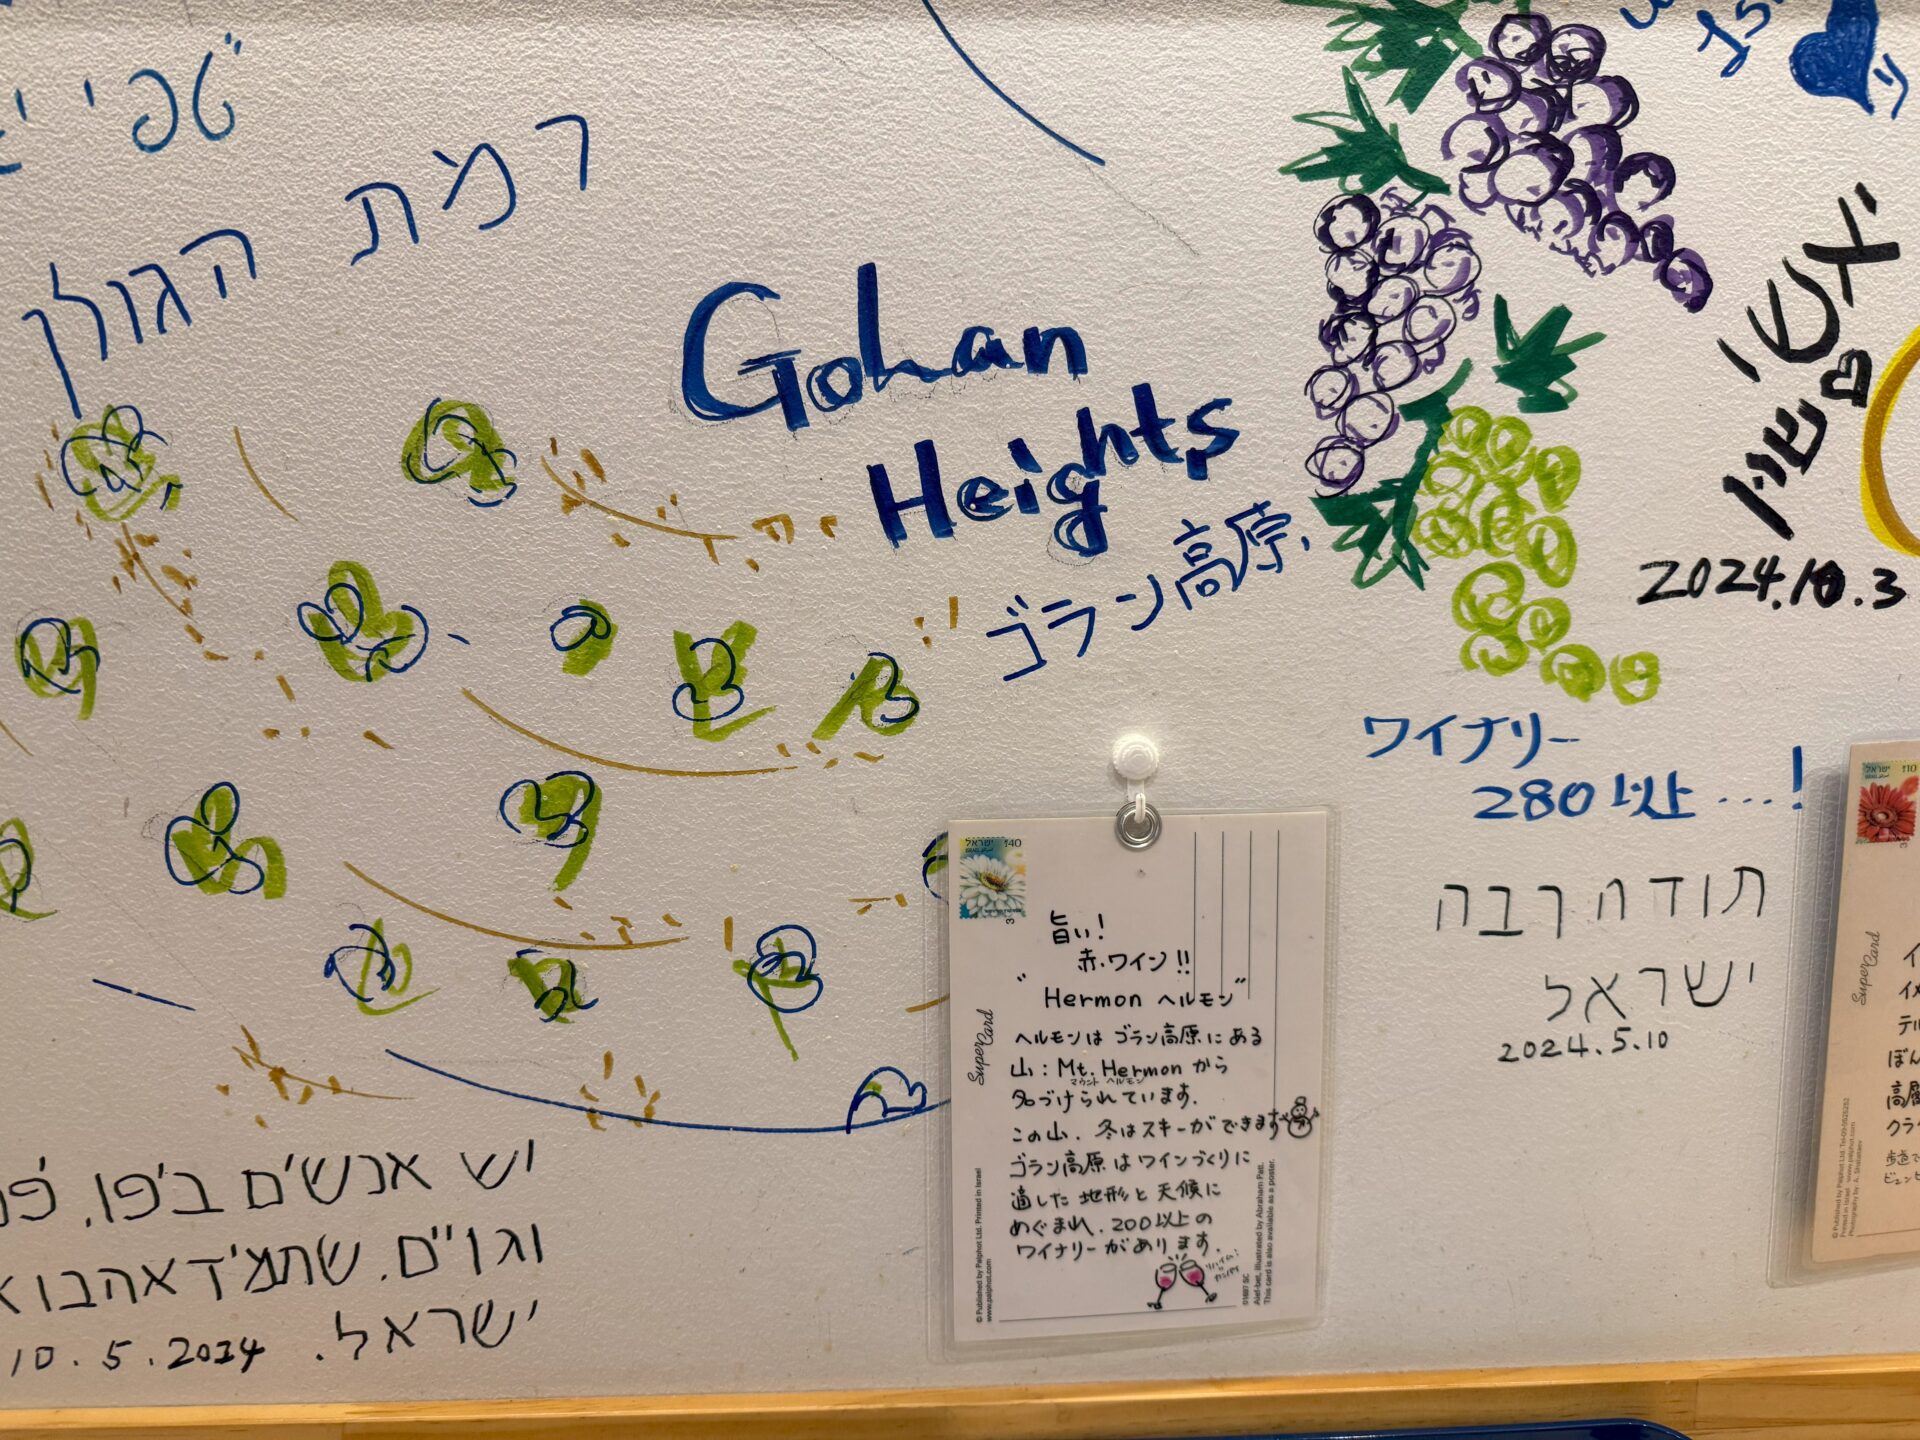 רמת הגולן
Gohan
Heights
ゴラン高原
ワイナリー
280以上....!
תודה רבה
ישראל
2024.5.10
2024.10.3
ישראל
ISRAEL
旨い!
赤ワイン!!
"Hermon ヘルモン"
ヘルモンは ゴラン高原にある
山:Mt. Hermon から
マウント ヘルモン
名づけられています.
この山.冬はスキーができます
ゴラン高原はワインづくりに
適した 地形と天候に
めぐまれ.200以上の
ワイナリーがあります.
Super Card
© Published by Palphot Ltd. Printed in Israel
www.palphot.com
Alef-bet, Illustrated by Abraham Patt.
This card is also available as a poster.
יש אנשים ביפו,
וגויים. שתמיד אהבו
ישראל.
10.5.2024
ישראל
Super Card
高層
クラ